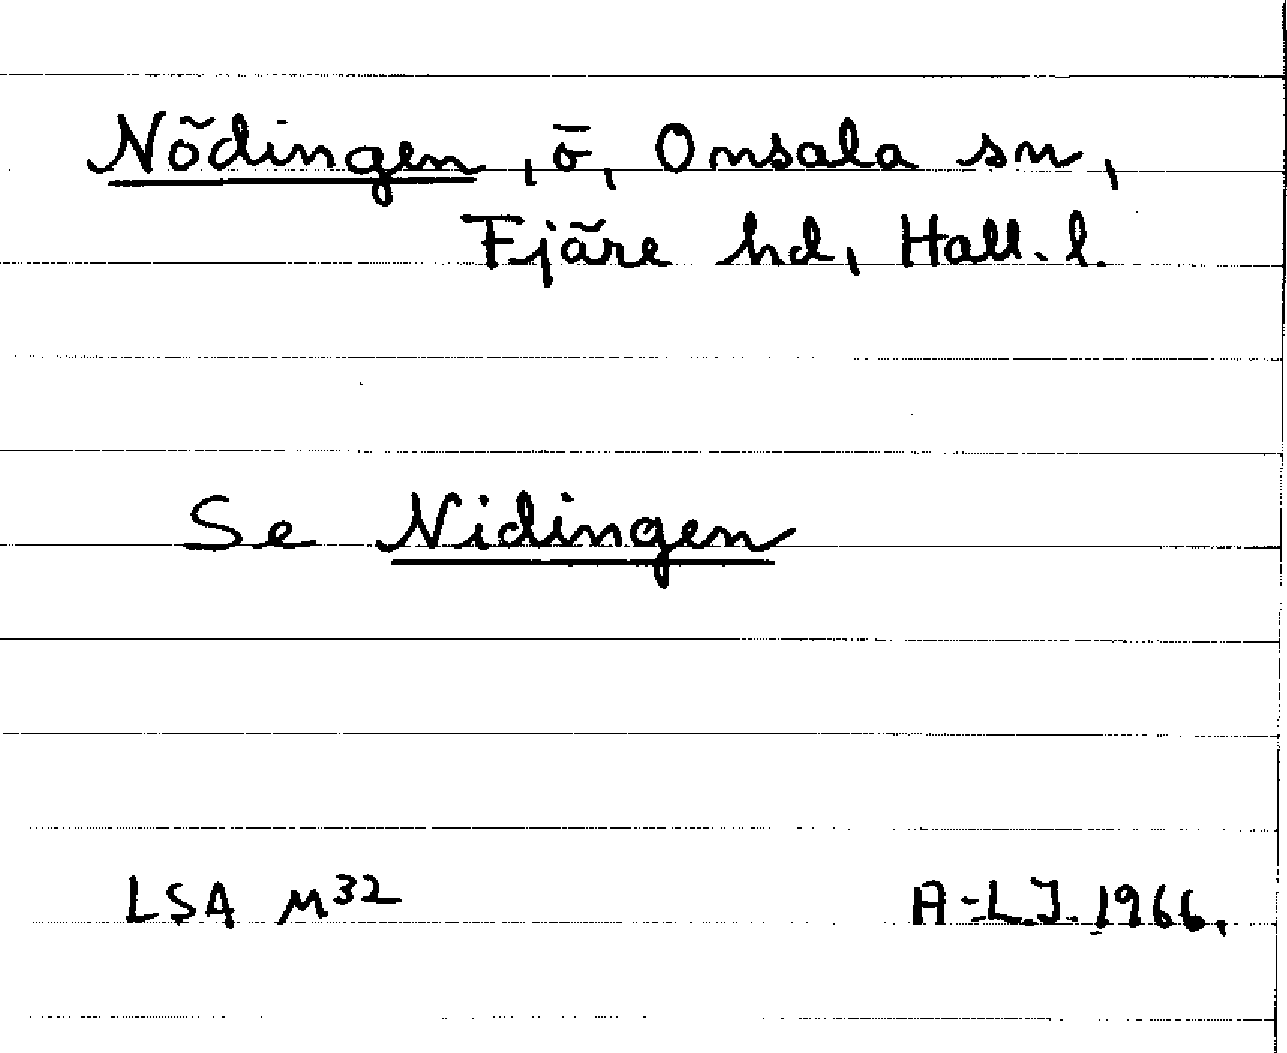 Nödingen, ö, Onsala sn,
Fjäre hd, Hall. l.
Se Nidingen
LSA M32
A-L.J. 1966.